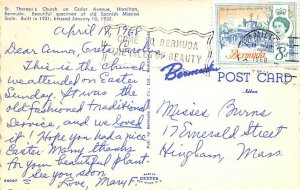 St. Theresa's Church on Cedar Avenue, Hamilton,
Bermuda. Beautiful specimen of old Spanish Mission
Style. Built in 1931; blessed January 10, 1932.
April 18, 1968
Dear Anna, Greta, Caroline,
This is the church
we attended on Easter
Sunday. It was the
old fashioned traditional
Service, and we loved
it! Hope you had a nice
Easter. Many thanks
for your beautiful plant.
See you soon
Love, Mary F.
BERMUDA
BEAUTY
Bermuda
Bermuda
POST CARD
Address
Misses Burns
17 Emerald Street
Hingham, Mass.
DEXTER